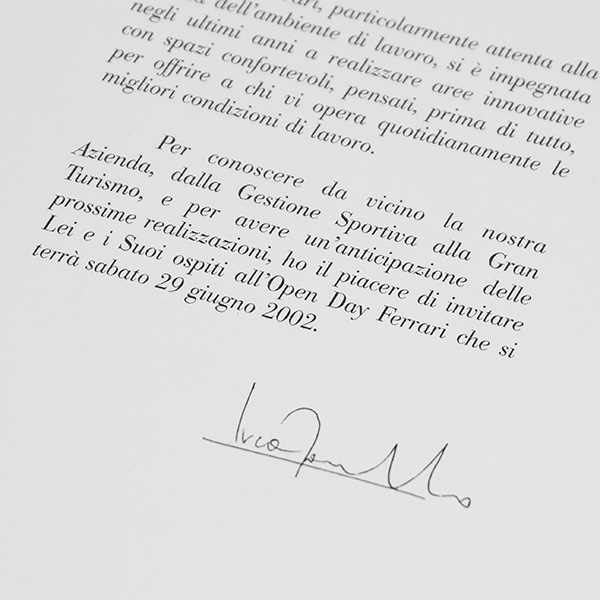 ari, particolarmente attenta alla
dell'ambiente di lavoro, si è impegnata
negli ultimi anni a realizzare aree innovative
con spazi confortevoli, pensati, prima di tutto,
per offrire a chi vi opera quotidianamente le
migliori condizioni di lavoro.
Per conoscere da vicino la nostra
Azienda, dalla Gestione Sportiva alla Gran
Turismo, e per avere un'anticipazione delle
prossime realizzazioni, ho il piacere di invitare
Lei e i Suoi ospiti all'Open Day Ferrari che si
terrà sabato 29 giugno 2002.